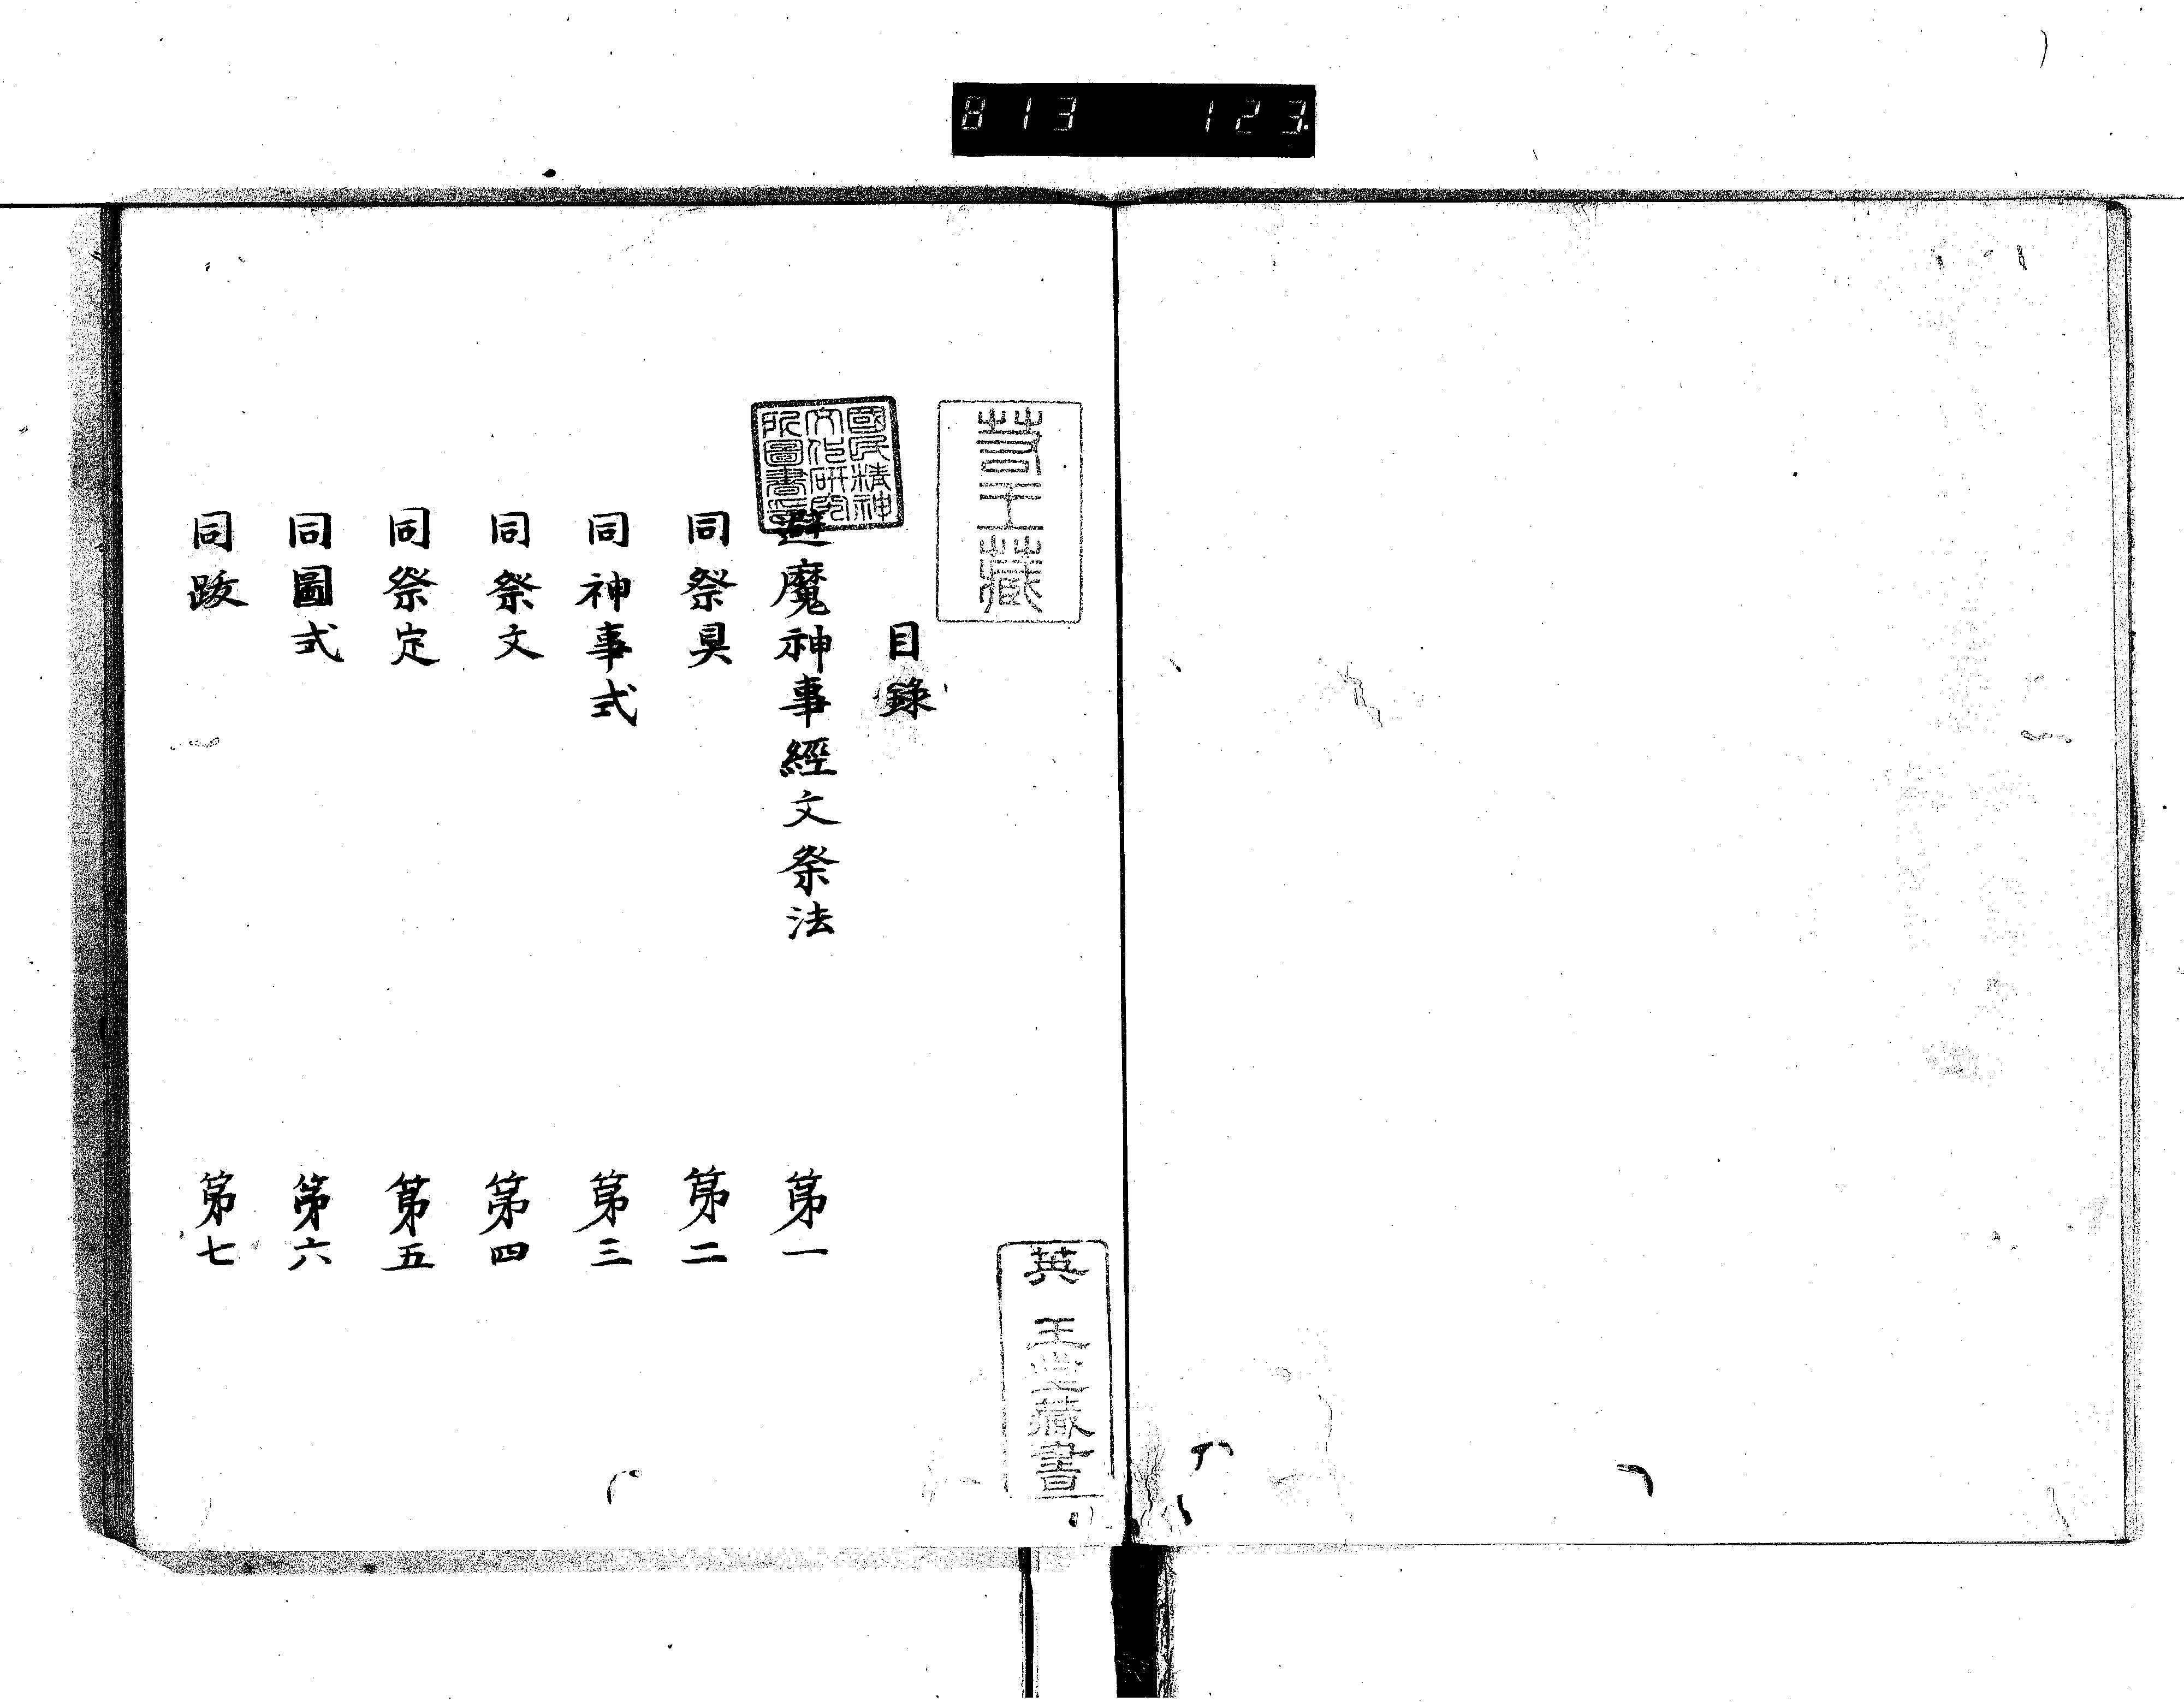 813 123
目錄
避魔神事經文祭法 第一
同祭具 第二
同神事式 第三
同祭文 第四
同祭定 第五
同圖式 第六
同跋 第七
國民精神
文化研究
所圖書印
王藏
英王堂藏書